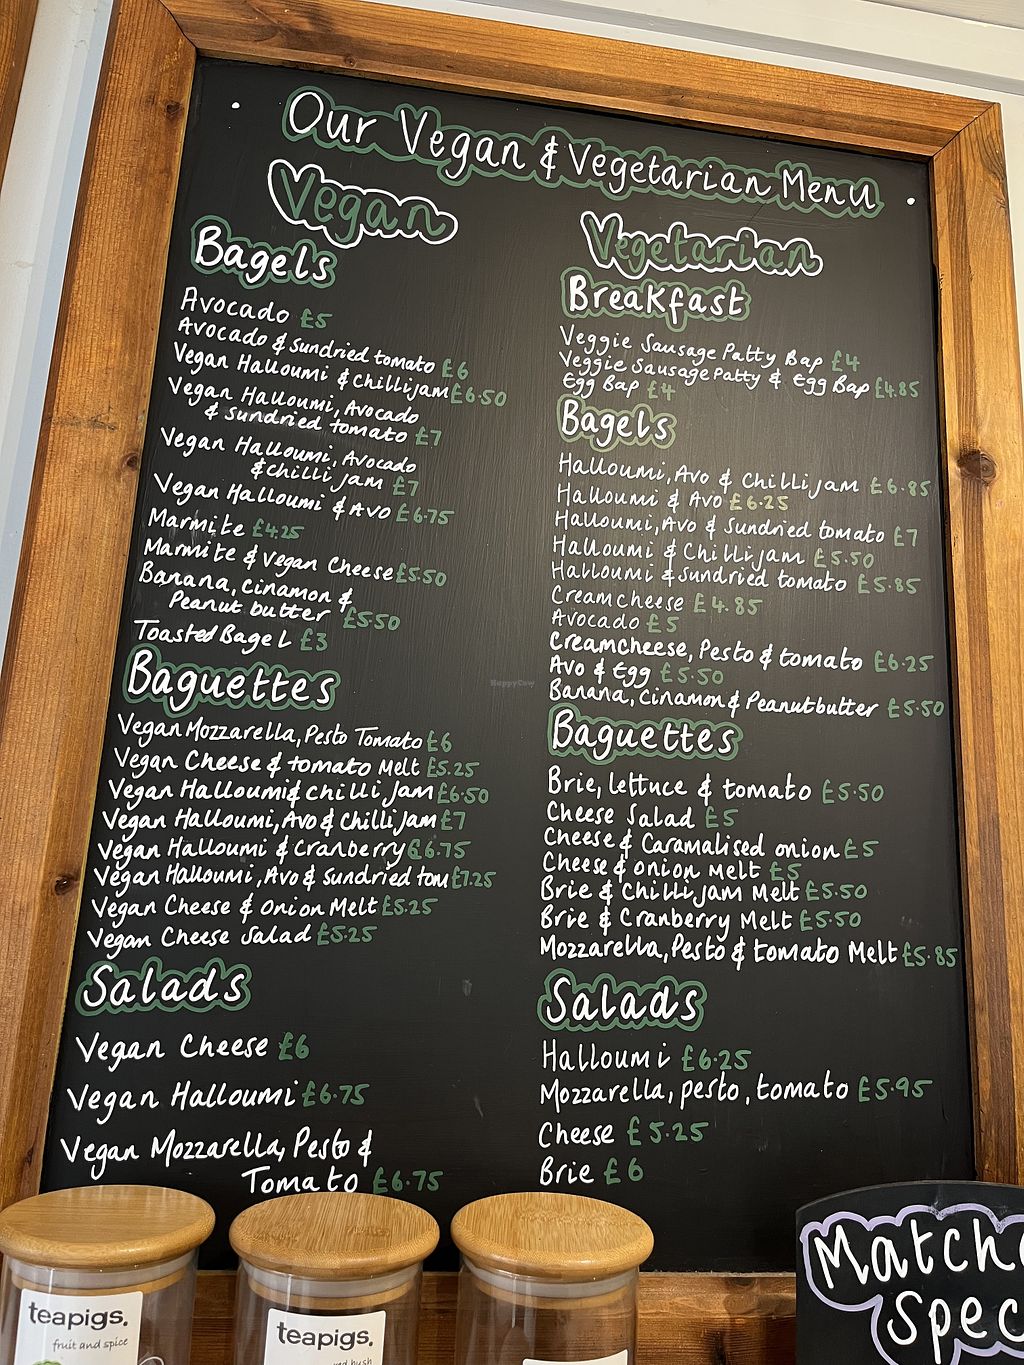 Our Vegan & Vegetarian Menu
Vegan
Bagels
Avocado £5
Avocado & Sundried tomato £6
Vegan Halloumi & Chillijam £6.50
Vegan Halloumi, Avocado
& Sundried tomato £7
Vegan Halloumi, Avocado
& Chilli jam £7
Vegan Halloumi & Avo £6.75
Marmite £4.25
Marmite & Vegan Cheese £5.50
Banana, Cinamon &
Peanut butter £5.50
Toasted Bagel £3
Baguettes
Vegan Mozzarella, Pesto Tomato £6
Vegan Cheese & tomato Melt £5.25
Vegan Halloumi & Chilli Jam £6.50
Vegan Halloumi, Avo & Chilli Jam £7
Vegan Halloumi & Cranberry £6.75
Vegan Halloumi, Avo & Sundried tom £7.25
Vegan Cheese & Onion Melt £5.25
Vegan Cheese Salad £5.25
Salads
Vegan Cheese £6
Vegan Halloumi £6.75
Vegan Mozzarella, Pesto &
Tomato £6.75
Vegetarian
Breakfast
Veggie Sausage Patty Bap £4
Veggie Sausage Patty & Egg Bap £4.85
Egg Bap £4
Bagels
Halloumi, Avo & Chilli Jam £6.85
Halloumi & Avo £6.25
Halloumi, Avo & Sundried tomato £7
Halloumi & Chilli jam £5.50
Halloumi & Sundried tomato £5.85
Creamcheese £4.85
Avocado £5
Creamcheese, Pesto & tomato £6.25
Avo & Egg £5.50
Banana, Cinamon & Peanutbutter £5.50
Baguettes
Brie, lettuce & tomato £5.50
Cheese Salad £5
Cheese & Caramalised onion £5
Cheese & onion Melt £5
Brie & Chilli Jam Melt £5.50
Brie & Cranberry Melt £5.50
Mozzarella, Pesto & tomato Melt £5.85
Salads
Halloumi £6.25
Mozzarella, pesto, tomato £5.95
Cheese £5.25
Brie £6
HappyCow
teapigs.
fruit and spice
teapigs.
Match
Spec